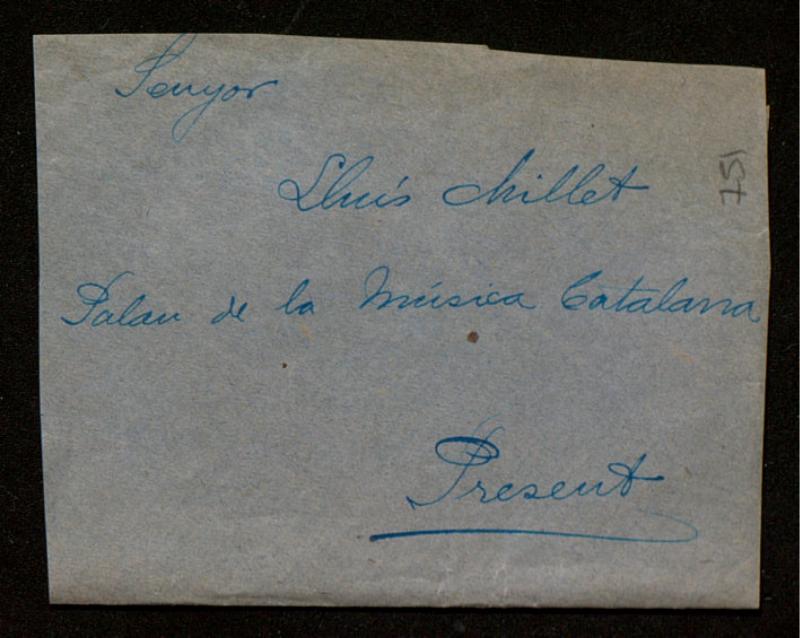 Senyor
Lluís Millet
Palau de la Música Catalana
Present
751